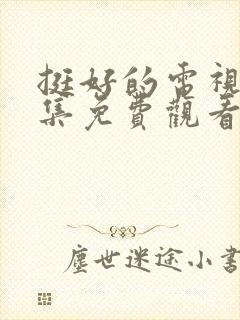 挺好的電視
集免費觀看
塵世迷途小書